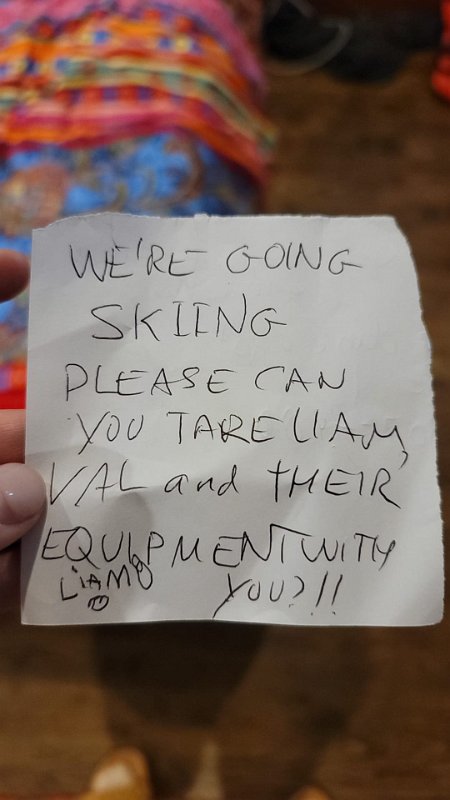 WE'RE GOING
SKIING
PLEASE CAN
YOU TAKE LIAM,
VAL and THEIR
EQUIPMENT WITH
YOU?!!
LiAM